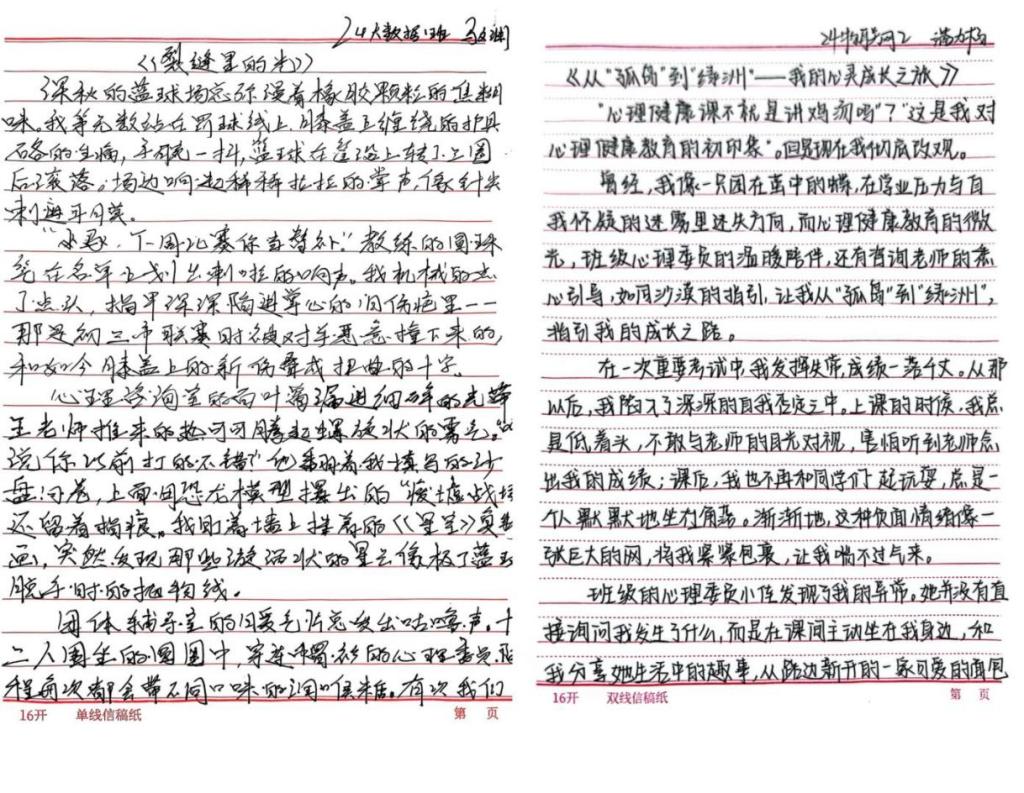 24大数据1班
《裂缝里的光》
深秋的篮球场总弥漫着橡胶颗粒的焦糊
味。我第无数次站在罚球线上,膝盖上缠绕的护具
硌的生痛,手腕一抖,篮球在篮筐上转了三圈
后滚落。场边响起稀稀拉拉的掌声,像针尖
刺进耳膜。
下周比赛你当替补。"教练的圆珠
笔在名单上划出刺啦的响声。我机械的点
了点头,指甲深深陷进掌心的旧伤疤里——
那是初三市联赛时被对手恶意撞下来的,
和如今膝盖上的新伤叠成扭曲的十字。
心理咨询室的百叶窗漏进细碎的光带
王老师推来的热可可腾起螺旋状的雾气。"
说你以前打的不错"他翻着我填写的沙
盘问卷,上面用恐龙模型摆出的"废墟战场
还留着指痕。我盯着墙上挂着的《星空》
画,突然发现那些漩涡状的星云像极了篮球
脱手时的抛物线。
团体辅导室的暖气片总发出咕噜声。十
二人围坐的圆圈中,穿连帽衫的心理委员
程每次都会带不同口味的润喉糖。有次我们
16开 单线信稿纸 第 页
24物联网2
《从"孤岛"到"绿洲"——我的心灵成长之旅》
"心理健康课不就是讲鸡汤吗"?"这是我对
心理健康教育的初印象"。但是现在我彻底改观。
曾经,我像一只困在茧中的蝶,在学业压力与自
我怀疑的迷雾里迷失方向,而心理健康教育的微
光,班级心理委员的温暖陪伴,还有咨询老师的悉
心引导,如同沙漠的指引,让我从"孤岛"到"绿洲",
指引我的成长之路。
在一次重要考试中,我发挥失常,成绩一落千丈。从那
以后,我陷入了深深的自我否定之中。上课的时候,我总
是低着头,不敢与老师的目光对视,害怕听到老师念
出我的成绩;课后,我也不再和同学们一起玩耍,总是一
个人默默地坐在角落。渐渐地,这种负面情绪像一
张巨大的网,将我紧紧包裹,让我喘不过气来。
班级的心理委员小佳发现了我的异常。她并没有直
接询问我发生了什么,而是在课间主动坐在我身边,和
我分享她生活中的趣事,从路边新开的一家可爱的面包
16开 双线信稿纸 第 页